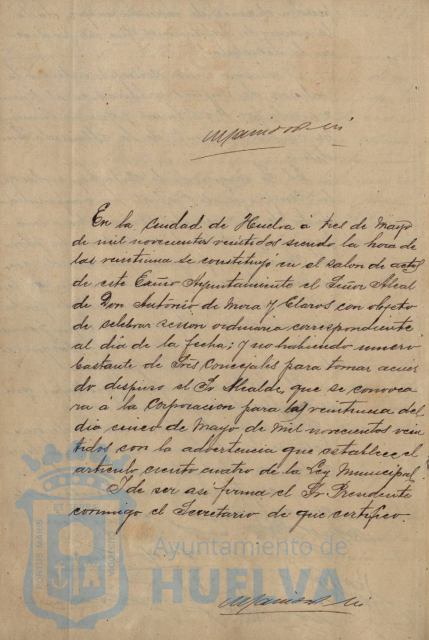 En la ciudad de Huelva á tres de Mayo
de mil novecientos veintidos siendo la hora de
las veintiuna se constituyó en el salon de actos
de este Excmo Ayuntamiento el Señor Alcal
de Don Antonio de Mora y Claros con objeto
de celebrar sesion ordinaria correspondiente
al dia de la fecha; y no habiendo numero
bastante de Sres Concejales para tomar acuer
do dispuso el Sr Alcalde que se convoca
ra á la Corporacion para las veintiuna del
dia cinco de Mayo de mil novecientos vein
tidos con la advertencia que establece el
articulo ciento cuatro de la Ley Municipal.
Y de ser asi firma el Sr Presidente
conmigo el Secretario de que certifico.
Ayuntamiento de
HUELVA